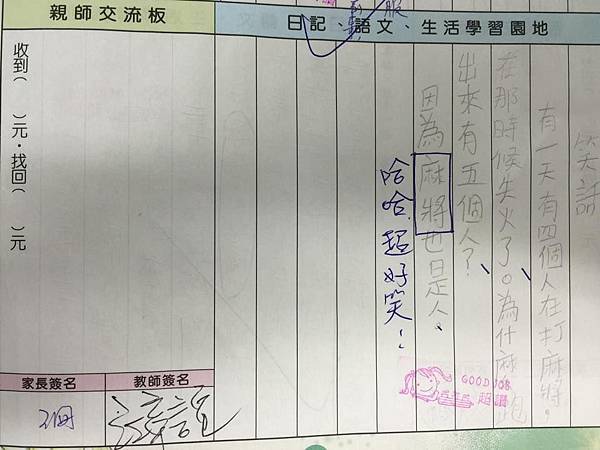 親師交流板
日記、語文、生活學習園地
笑話
有一天有四個人在打麻將。
在那時候失火了。為什麼跑
出來有五個人?
因為麻將也是人、
哈哈,超好笑!
GOOD JOB
超讚
收到( )元,找回( )元
家長簽名
教師簽名